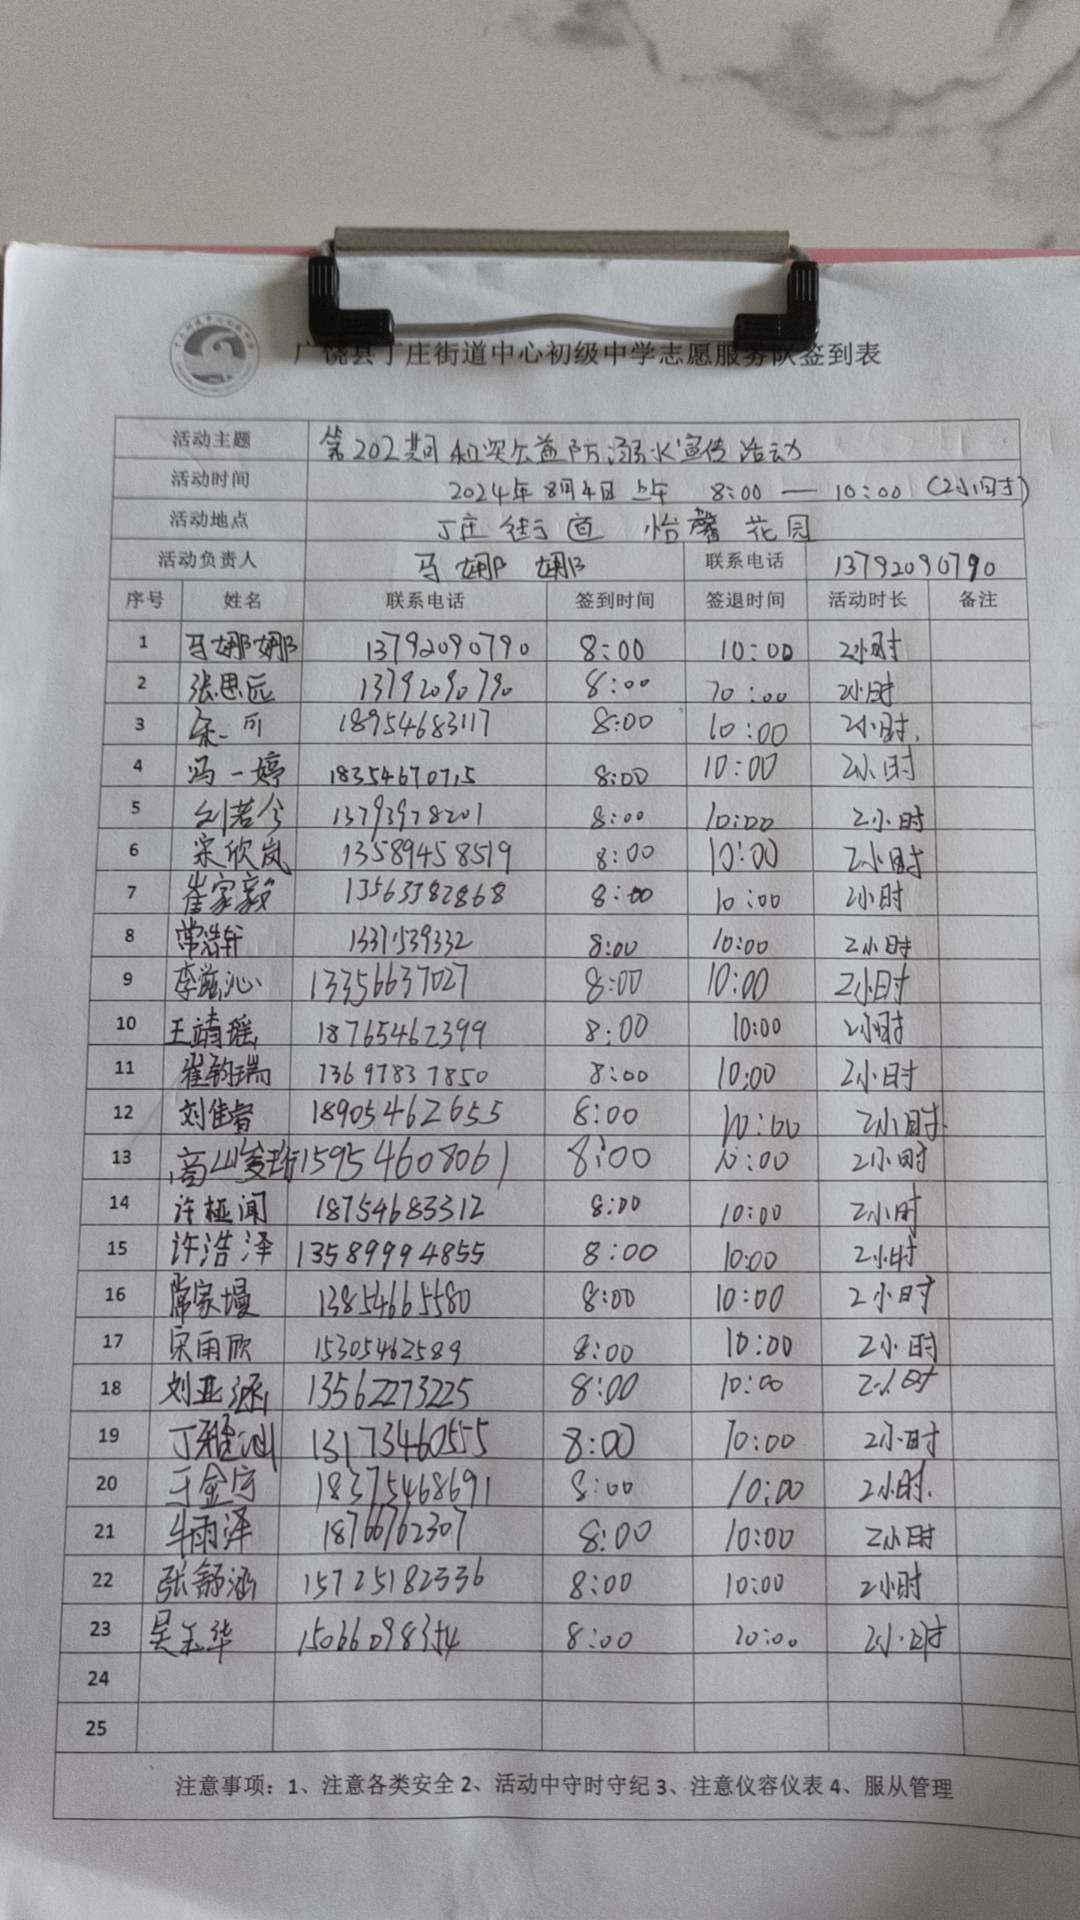 广饶县丁庄街道中心初级中学志愿服务队签到表
活动主题 第202期 和奕公益防溺水宣传活动
活动时间 2024年8月4日 上午 8:00 — 10:00 (2小时)
活动地点 丁庄街道 怡馨花园
活动负责人 马娜娜 联系电话 13792090790
序号 姓名 联系电话 签到时间 签退时间 活动时长 备注
1 马娜娜 13792090790 8:00 10:00 2小时
2 张思远 13792090790 8:00 10:00 2小时
3 可 18954683117 8:00 10:00 2小时.
4 冯一婷 18354670715 8:00 10:00 2小时
5 刘若兮 13793978201 8:00 10:00 2小时
6 宋欣岚 13589458519 8:00 10:00 2小时
7 崔家毅 13563382868 8:00 10:00 2小时
8 常浩轩 1331539332 8:00 10:00 2小时
9 李滋沁 13356637027 8:00 10:00 2小时
10 王靖瑶 18765462399 8:00 10:00 2小时
11 崔钧瑞 13697837850 8:00 10:00 2小时
12 刘佳睿 18905462655 8:00 10:00 2小时.
13 15954608061 8:00 10:00 2小时
14 许桠闻 18754683312 8:00 10:00 2小时
15 许浩泽 13589994855 8:00 10:00 2小时
16 家墁 13854665580 8:00 10:00 2小时
17 宋雨欣 15305462589 8:00 10:00 2小时
18 刘亚涵 13562273225 8:00 10:00 2小时
19 丁雅 13173460555 8:00 10:00 2小时
20 于金宇 18375468691 8:00 10:00 2小时.
21 雨泽 18766762307 8:00 10:00 2小时
22 张舒涵 15725182336 8:00 10:00 2小时
23 吴玉华 15066098354 8:00 10:00 2小时
24
25
注意事项：1、注意各类安全 2、活动中守时守纪 3、注意仪容仪表 4、服从管理